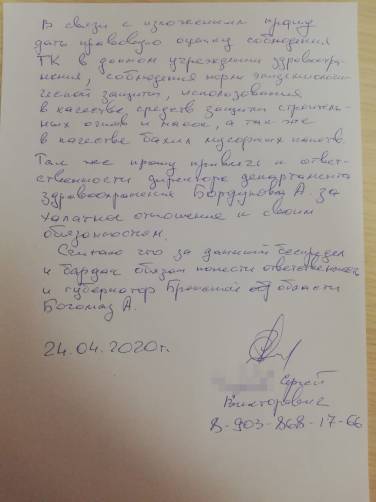 В связи с изложенным прошу
дать правовую оценку соблюдения
ТК в данном учреждении здравоохра-
нения, соблюдения норм эпидемиологи-
ческой защиты, использования
в качестве средств защиты строитель-
ных очков и масок, а так же
в качестве бахил мусорных пакетов.
Так же прошу привлечь к ответ-
ственности директора департамента
здравоохранения Бардукова А. за
халатное отношение к своим
обязанностям.
Считаю что за данный беспредел
и бардак обязан понести ответственность
и губернатор Брянской области
Богомаз А.
24.04.2020г.
Сергей
Викторович
8-903-868-17-66